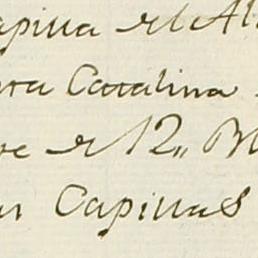 apilla del Al
ra Catalina
re de 12,, M
as Capillas